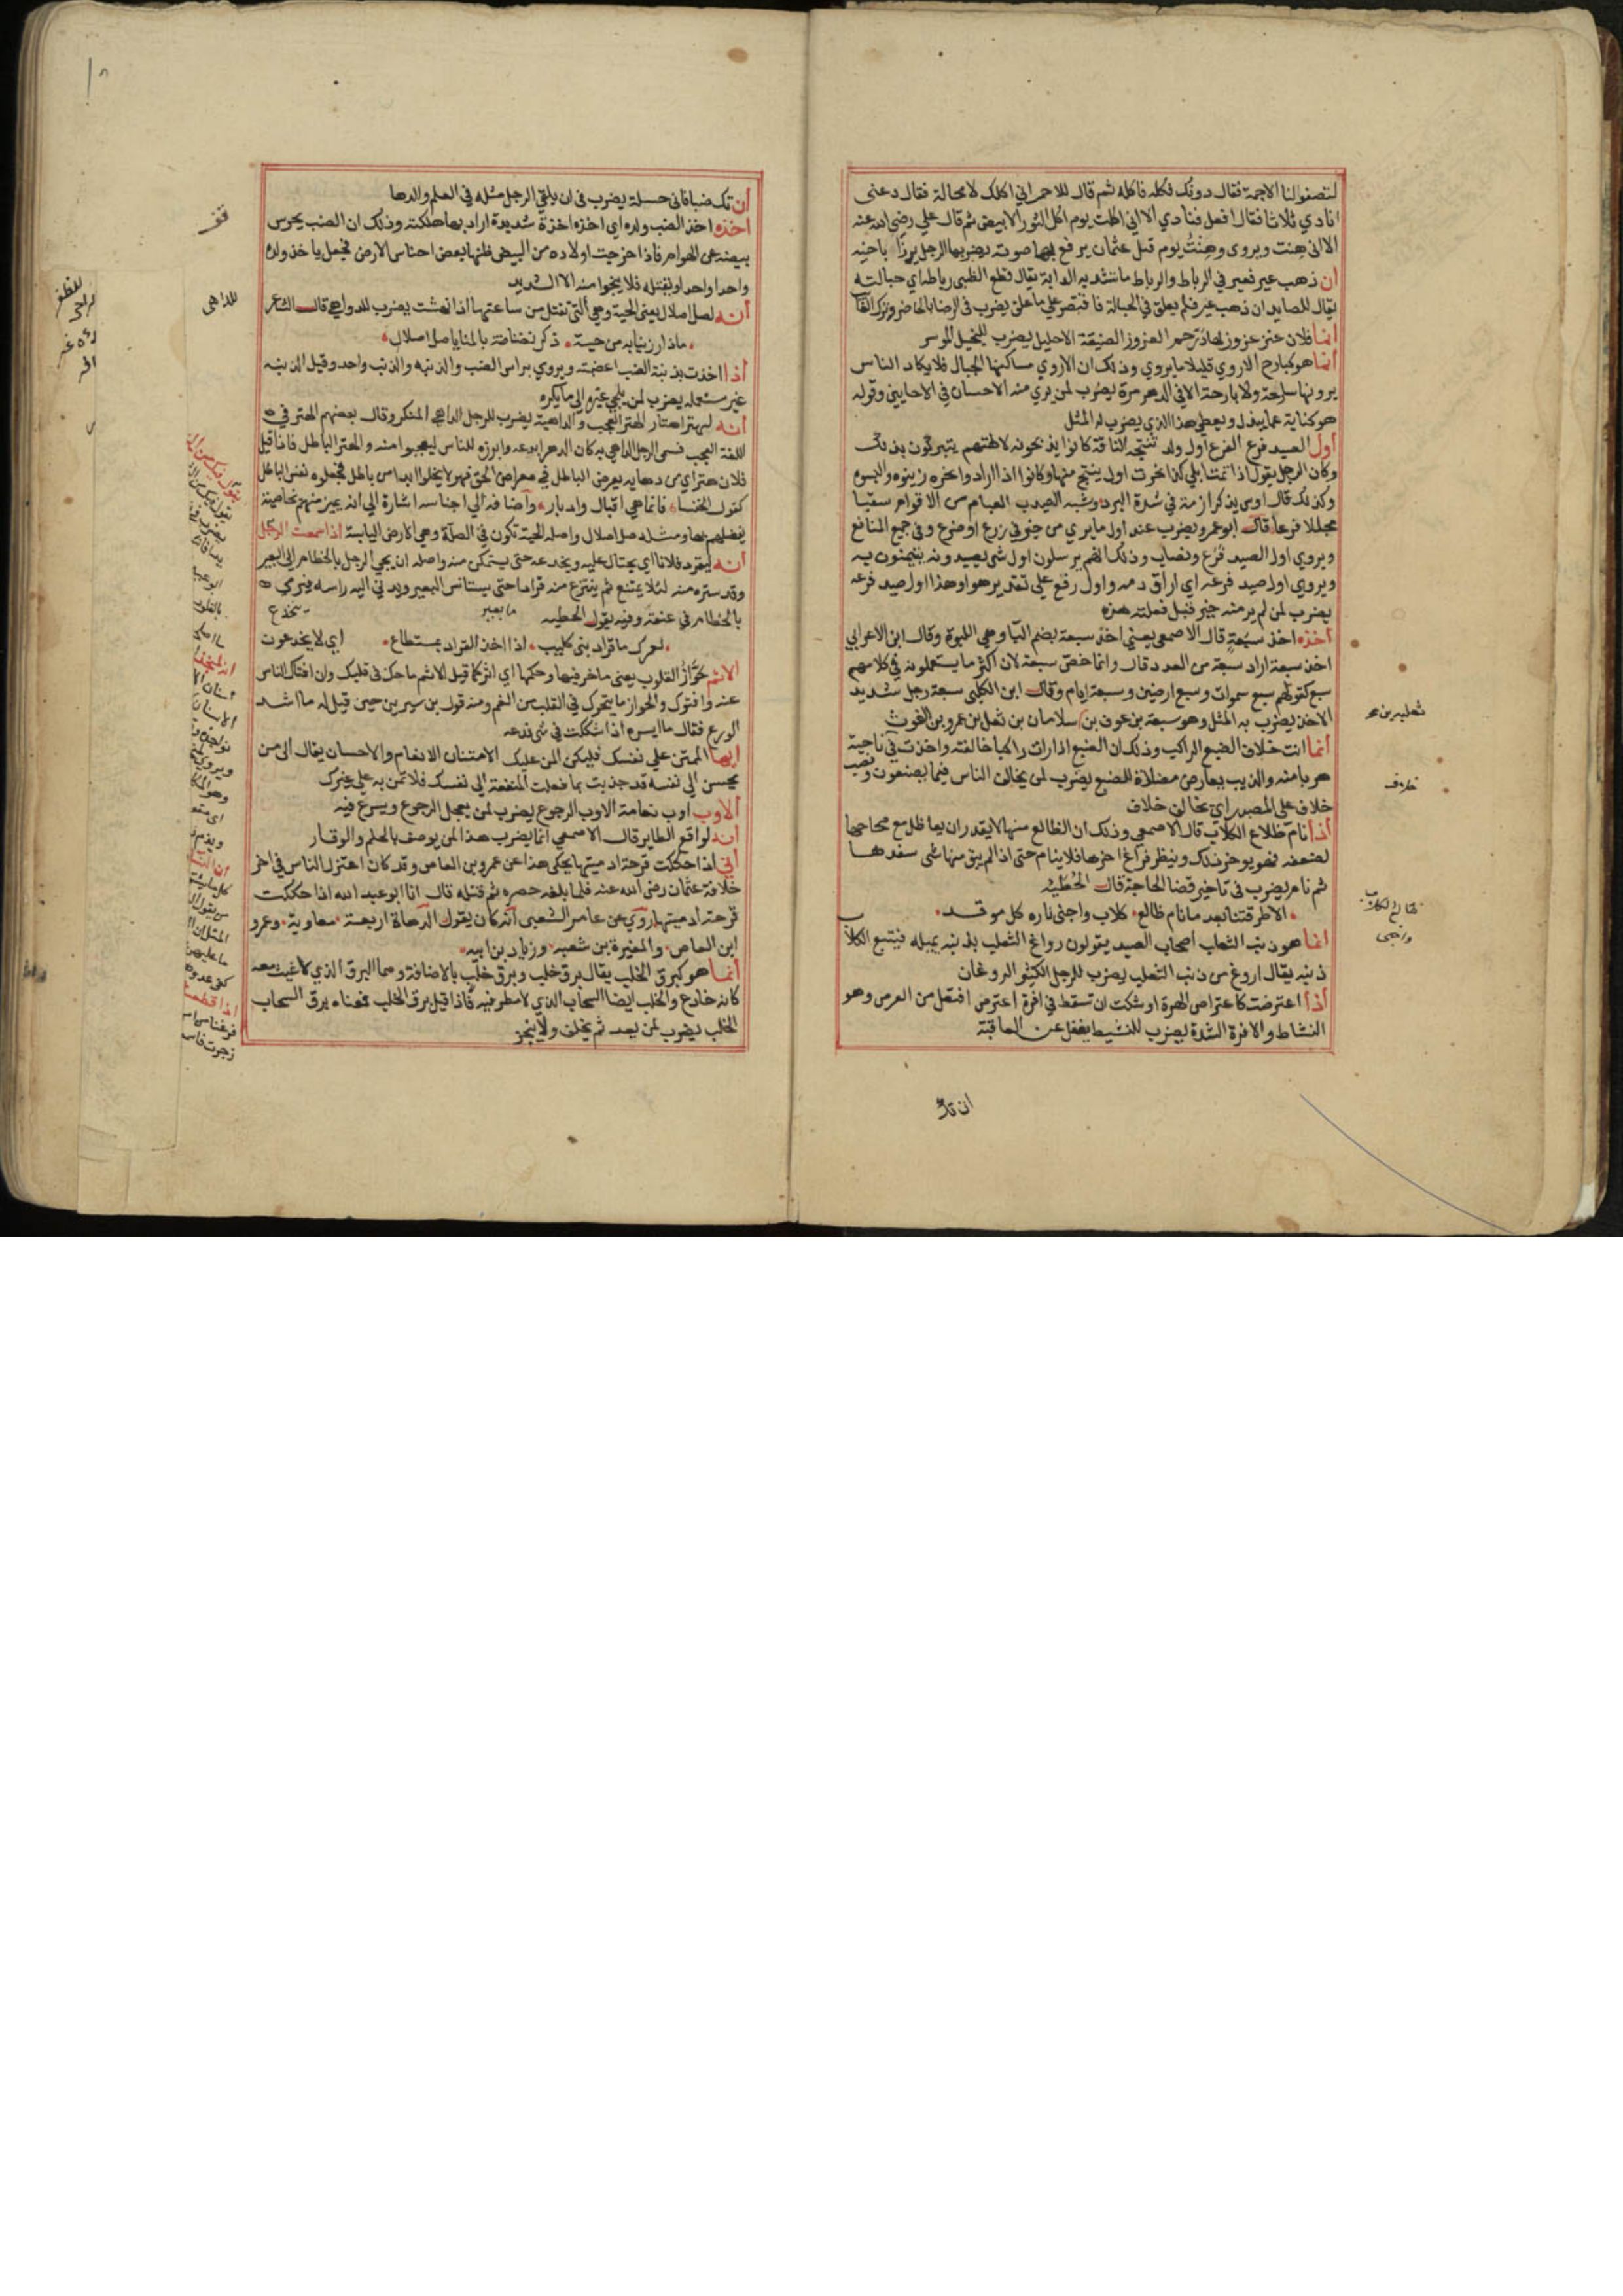 لتصفو لنا الاجمة فقال دونك فكله فاكله ثم قال للاحمر اني اكلك لا محالة فقال دعنى
انادي ثلاثا فقال افعل فنادي الا اني اكلت يوم اكل الثور الابيض ثم قال علي رضي الله عنه
الا اني هنت ويروى وهنت يوم قتل عثمان يرفع بها صوته يضربها الرجل يرزا باخيه
ان ذهب عير فعير في الرباط والرباط ما تشد به الدابة يقال قطع الظبي رباطه اي حبالته
يقال للصايد ان ذهب عير فلم يعلق في الحبالة فاقتصر علي ما علق يضرب في الرضا بالحاضر وترك الغايب
انما فلان عنز عزوز لها درجم العزوز الضيقة الاحليل يضرب للبخيل الموسر
انما هو كبارح الاروي قليلا ما يروي وذلك ان الاروي مساكنها الجبال فلا يكاد الناس
يرونها سارحة ولا بارحة الا في الدهر مرة يضرب لمن يري منه الاحسان في الاحايين وقوله
هو كناية عما يبذل ويعطى هذا الذي يضرب له المثل
اول الصيد فرع الفرع اول ولد تنتجه الناقة كانوا يذبحونه لالهتهم يتبركون بذلك
وكان الرجل يقول اذا تمت ابلي كذا نحرت اول ينتج منها وكانوا اذا ارادوا نحره زينوه والبسوه
وكذلك قال اوس يذكر ازمة في شدة البرد وشبه الهيدب العبام من الاقوام سقبا
مجللا فرعا قال ابو عمرو يضرب عند اول ما يري من خير في زرع او ضرع وفي جميع المنافع
ويروي اول الصيد فرع ونصاب وذلك انهم يرسلون اول شي يصيدونه يتيمنون به
ويروي اول صيد فرعه اي اراق دمه واول رفع علي تقدير هو او هذا اول صيد فرعه
يضرب لمن لم ير منه خير قبل فعلته هذه
اخذه اخذ سبعة قال الاصمعي يعني اخذ سبعة بضم البا وهي اللبوة وقال ابن الاعرابي
اخذ سبعة اراد سبعة من العدد قال وانما خص سبعة لان اكثر ما يستعملونه في كلامهم
سبع كقولهم سبع سموات وسبع ارضين وسبعة ايام وقال ابن الكلبي سبعة رجل شديد
الاخذ يضرب به المثل وهو سبعة بن عوف بن سلامان بن ثعل بن عمرو بن الغوث
انما انت خلاف الضبع الراكب وذلك ان الضبع اذا رات راكبا خالفته واخذت في ناحية
هربا منه والذيب يعارض مضادة للضبع يضرب لمن يخالف الناس فيما يصنعون ونصب
خلاف على المصدر اي تخالف خلاف
اذا نام ظالع الكلاب قال الاصمعي وذلك ان الظالع منها لا يقدر ان يعاظل مع صحاحها
لضعفه فهو يوخر ذلك وينظر فراغ اخرها فلا ينام حتى اذا لم يبق منها شي سفدها
ثم نام يضرب في تاخير قضا الحاجة قال الحطيئه
الا طرقتنا بعد ما نام ظالع كلاب واجنى ناره كل موقد
انما هو ذنب الثعلب اصحاب الصيد يقولون رواغ الثعلب بذنبه يميله فيتبع الكلاب
ذنبه يقال اروغ من ذنب الثعلب يضرب للرجل الكثير الروغان
اذا اعترضت كاعتراض الهرة اوشكت ان تسقط في افرة اعترض افتعل من العرض وهو
النشاط والافرة الشدة يضرب للنشيط يغفل عن العاقبة
ان تك
خلاف
ظالع الكلاب
واجنى
ان تك ضبا فاني حسله يضرب في ان يلقي الرجل مثله في العلم والدها
اخذه اخذ الضب ولده اي اخذه اخذة شديدة اراد بها هلكته وذلك ان الضب يحرس
بيضه عن الهوام فاذا خرجت اولاده من البيض ظنها بعض احناس الارض فجعل ياخذ ولده
واحدا واحدا ويقتله فلا ينجوا منه الا الشديد
انه لصل اصلال يعنى الحية وهي التي تقتل من ساعتها اذا نهشت يضرب للدواهي قال الشاعر
ماذا رزينا به من حية ذكر نضناضة بالمنايا صل اصلال
اذا اخذت بذنبة الضب اغضبته ويروي براس الضب والذنبه والذنب واحد وقيل الذنبه
غير مستعمله يضرب لمن يلجي غيره الي ما يكره
انه ليهتر اهتار الهتر العجب والداهية يضرب للرجل الداهي المنكر وقال بعضهم الهتر في
اللغة العجب فسمي الرجل الداهي به كان الدهر ابدعه وابرزه للناس ليعجبوا منه والهتر الباطل فاذا قيل
فلان هتر اي من دهايه يعرض الباطل في معرض الحق فهو لا يخلوا ابدا من باطل فجعلوه نفس الباطل
كقول الخنسا فانما هي اقبال وادبار واضافه الي اجناسه اشارة الي انه تميز منهم بخاصية
يفضلهم بها ومثله صل اصلال واصله الحية تكون في الصلة وهي الارض اليابسة اذا سمعت الرجل
انه ليقرد فلانا اي يحتال عليه ويخدعه حتى يستمكن منه واصله ان يجي الرجل بالخطام الي البعير
وقد ستره منه لئلا يمتنع ثم ينتزع منه قرادا حتى يستانس البعير ويدني اليه راسه فيرمي
بالخطام في عنقه وفيه يقول الحطيه
لعمرك ما قراد بني كليب اذا اخذ القراد بمستطاع اي لا يخدعون
الاثم حواز القلوب يعنى ما خر فيها وحكها اي اثر كما قيل الاثم ما حك في قلبك وان افتاك الناس
عنه وافتوك والحواز ما يتحرك في القلب من الغم ومنه قول بن سيرين حين قيل له ما اشد
الورع فقال ما ايسره اذا شككت في شي فدعه
ايها الممتن علي نفسك فليكن المن عليك الامتنان الانعام والاحسان يقال الي من
يحسن الي نفسه قد جذبت بما فعلت المنفعة الي نفسك فلا تمن به علي غيرك
الاوب اوب نعامة الاوب الرجوع يضرب لمن يعجل الرجوع ويسرع فيه
انه لواقع الطاير قال الاصمعي انما يضرب هذا لمن يوصف بالحلم والوقار
اني اذا حككت قرحة ادميتها يحكى هذا عن عمرو بن العاص وقد كان اعتزل الناس في اخر
خلافة عثمان رضي الله عنه فلما بلغه حصره ثم قتله قال انا ابو عبد الله اذا حككت
قرحة ادميتها روي عن عامر الشعبي انه كان يقول الدهاة اربعة معاوية وعمرو
ابن العاص والمغيرة بن شعبه وزياد بن ابيه
انما هو كبرق الخلب يقال برق خلب وبرق خلب بالاضافة وهما البرق الذي لا غيث معه
كانه خادع والخلب ايضا السحاب الذي لا مطر فيه فاذا قيل برق الخلب فمعناه برق السحاب
الخلب يضرب لمن يعد ثم يخلف ولا ينجز
للداهي